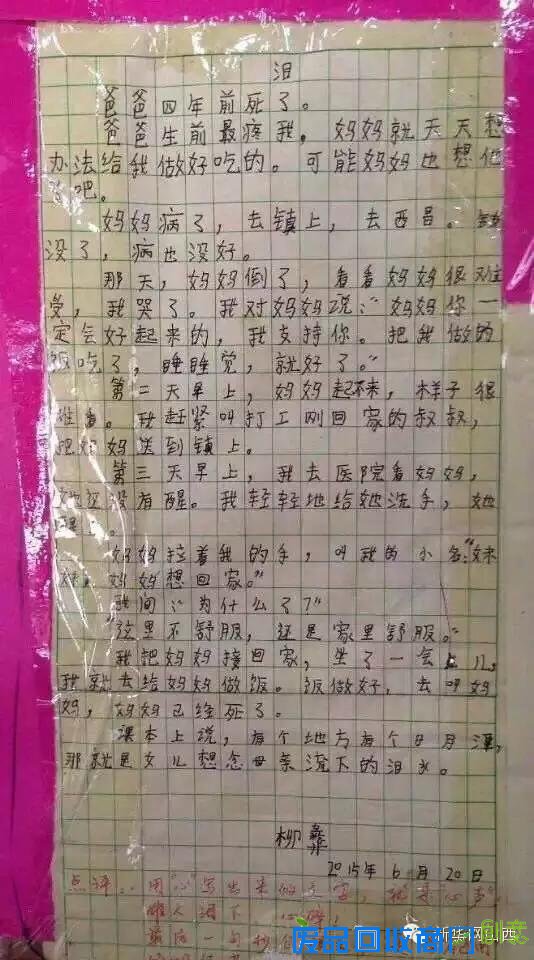 泪
爸爸四年前死了。
爸爸生前最疼我，妈妈就天天想
办法给我做好吃的。可能妈妈也想他
了吧。
妈妈病了，去镇上，去西昌。钱
没了，病也没好。
那天，妈妈倒了，看看妈妈很难
受，我哭了。我对妈妈说：“妈妈你一
定会好起来的，我支持你。把我做的
饭吃了，睡睡觉，就好了。”
第二天早上，妈妈起不来，样子很
难看。我赶紧叫打工刚回家的叔叔，
把妈妈送到镇上。
第三天早上，我去医院看妈妈，
她还没有醒。我轻轻地给她洗手，她
醒了。
妈妈拉着我的手，叫我的小名：“妹
妹，妈妈想回家。”
我问：“为什么了？”
“这里不舒服，还是家里舒服。”
我把妈妈接回家，坐了一会儿，
我就去给妈妈做饭。饭做好，去叫妈
妈，妈妈已经死了。
课本上说，有个地方有个日月潭，
那就是女儿想念母亲流下的泪水。
柳彝
2015年6月20日
点评：用“心”写出来的文字，
催人泪下
最后一句
新华网江西
废品回收商网